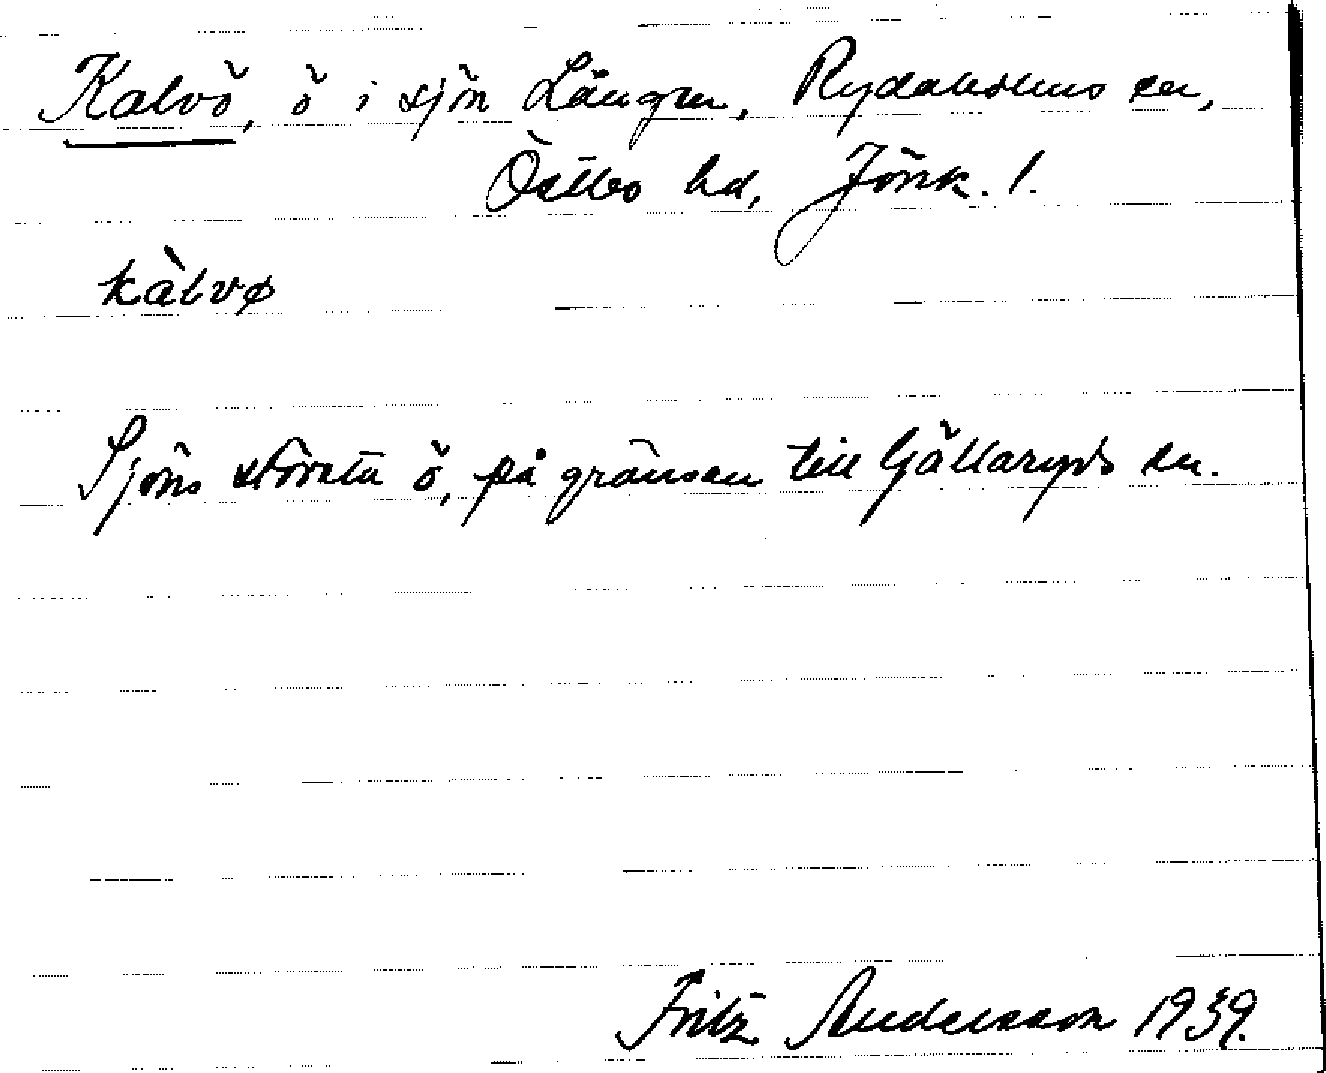 Kalvö, ö i sjön Längen, Rydaholms sn,
Östbo hd, Jönk. l.
kàlvø
Sjöns största ö, på gränsen till Gällaryds sn.
Fritz Andersson 1939.